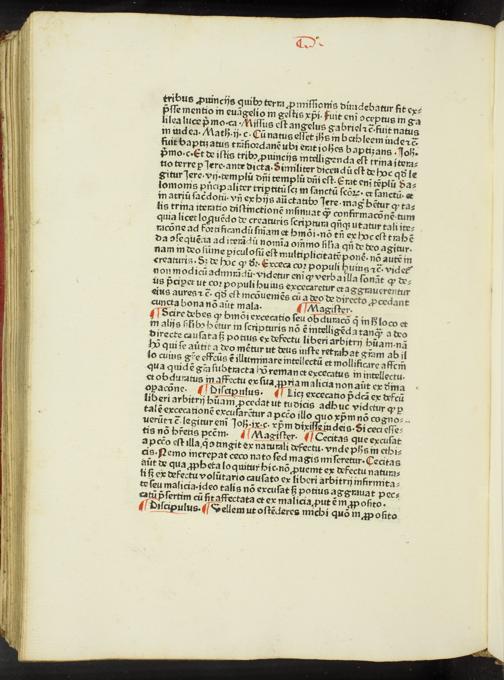 tribus ꝓuincijs quibꝰ terra ꝓmissionis diuidebatur fit ex-
p̄sse mentio in euāgelio in gestis xp̄i. Fuit eni ceptus in ga
lilea luce pͥmo.ca. Missus est angelus gabriel ⁊c̄. fuit natus
in iudea. Math.ij.c. Cū natus esset ih̄s in bethleem iude ⁊c̄
fuit baptizatus trās iordanē vbi erat ioh̄es baptizans. Ioh̄.
pͥmo.c. Et de istis tribꝰ ꝓuincijs intelligenda est trina itera-
tio terre p Iere. ante dicta. Similiter dicēdū est de hoc qd̄ le
gitur Iere. vij. templū dn̄i templū dn̄i est. Erat eni tēplū Sa-
lomonis pͥncipaliter
in atriū sacdotū. vn̄ ex hijs auctatibꝰ Iere. mag
lis trina iteratio distinctionē insinuat confirmacionē. tum
quia licet loquēdo de creaturis scriptura utatur tali ite-
racōne ad fortificandū sniam et hmōi. nō tn̄ ex hoc est trahē
da ꝯsequētia ad iterādū nomina diuina cum de deo agitur.
nam in deo sūme piculosū est multiplicitatē ponē. nō autē in
creaturis. Exceca cor populi huius ⁊c̄. videt᷑
non modicū admirādū. videtur eni verba illa sonāt de-
us pͥncipet ut cor populi huius excecaretur et aggrauerentur
eius aures ⁊c̄. qd̄ est incōueniēs cū a deo de directo ꝓcedant
cuncta bona nō aūt mala. ¶ Magister.
¶ Scire debes hmōi excecatio seu obduracō in hͦ loco et
in alijs silibꝰ hētur in scripturis nō ē intelligēda a deo
directe causata sꝫ potius ex defectu liberi arbitrij hūam. nā
hō qui se aūtit a deo mētur ut deus iuste retrahat grām ab il
lo cuius gr̄e effectus ē illuminare intellectū et mollificare affectū
qua quidē gr̄a subtracta hō remanet excecatus in intellectu
et obduratus in affectu ex sua ꝓpria malicia non aūt ex diuina
opacōne. ¶ Discipulus. ¶ Licꝫ excecatio p̄dca ex defectu
liberi arbitrij hūam ꝓcedat ut tu dicis adhuc videtur
talē excecationē excusaretur a pctō illo quo xpm nō cogno-
uerūt ⁊c̄ legitur eni Ioh̄.ix.c. xpm dixisse iudeis. Si ceci esse-
tis nō hr̄etis pctm̄. ¶ Magister. ¶ Cecitas que excusat
a pctō est illa tingit ex naturali defectu. vnde ph̄s in ethi-
cis. Nemo increpat ceco nato sed magis miseretur. Cecitas
aūt de qua ꝓpheta loquitur hic. nō ꝓuenit ex defectu natura-
li sꝫ ex defectu volūtario causato ex liberi arbitrij infirmita-
te seu malicia. ideo talis nō excusat sꝫ potius aggrauat pec-
catū p̄sertim cū sit affectata et ex malicia. put ē in ꝓposito.
¶ Discipulus. ¶ Vellem ut ostēderes michi quōm̄ in ꝓposito